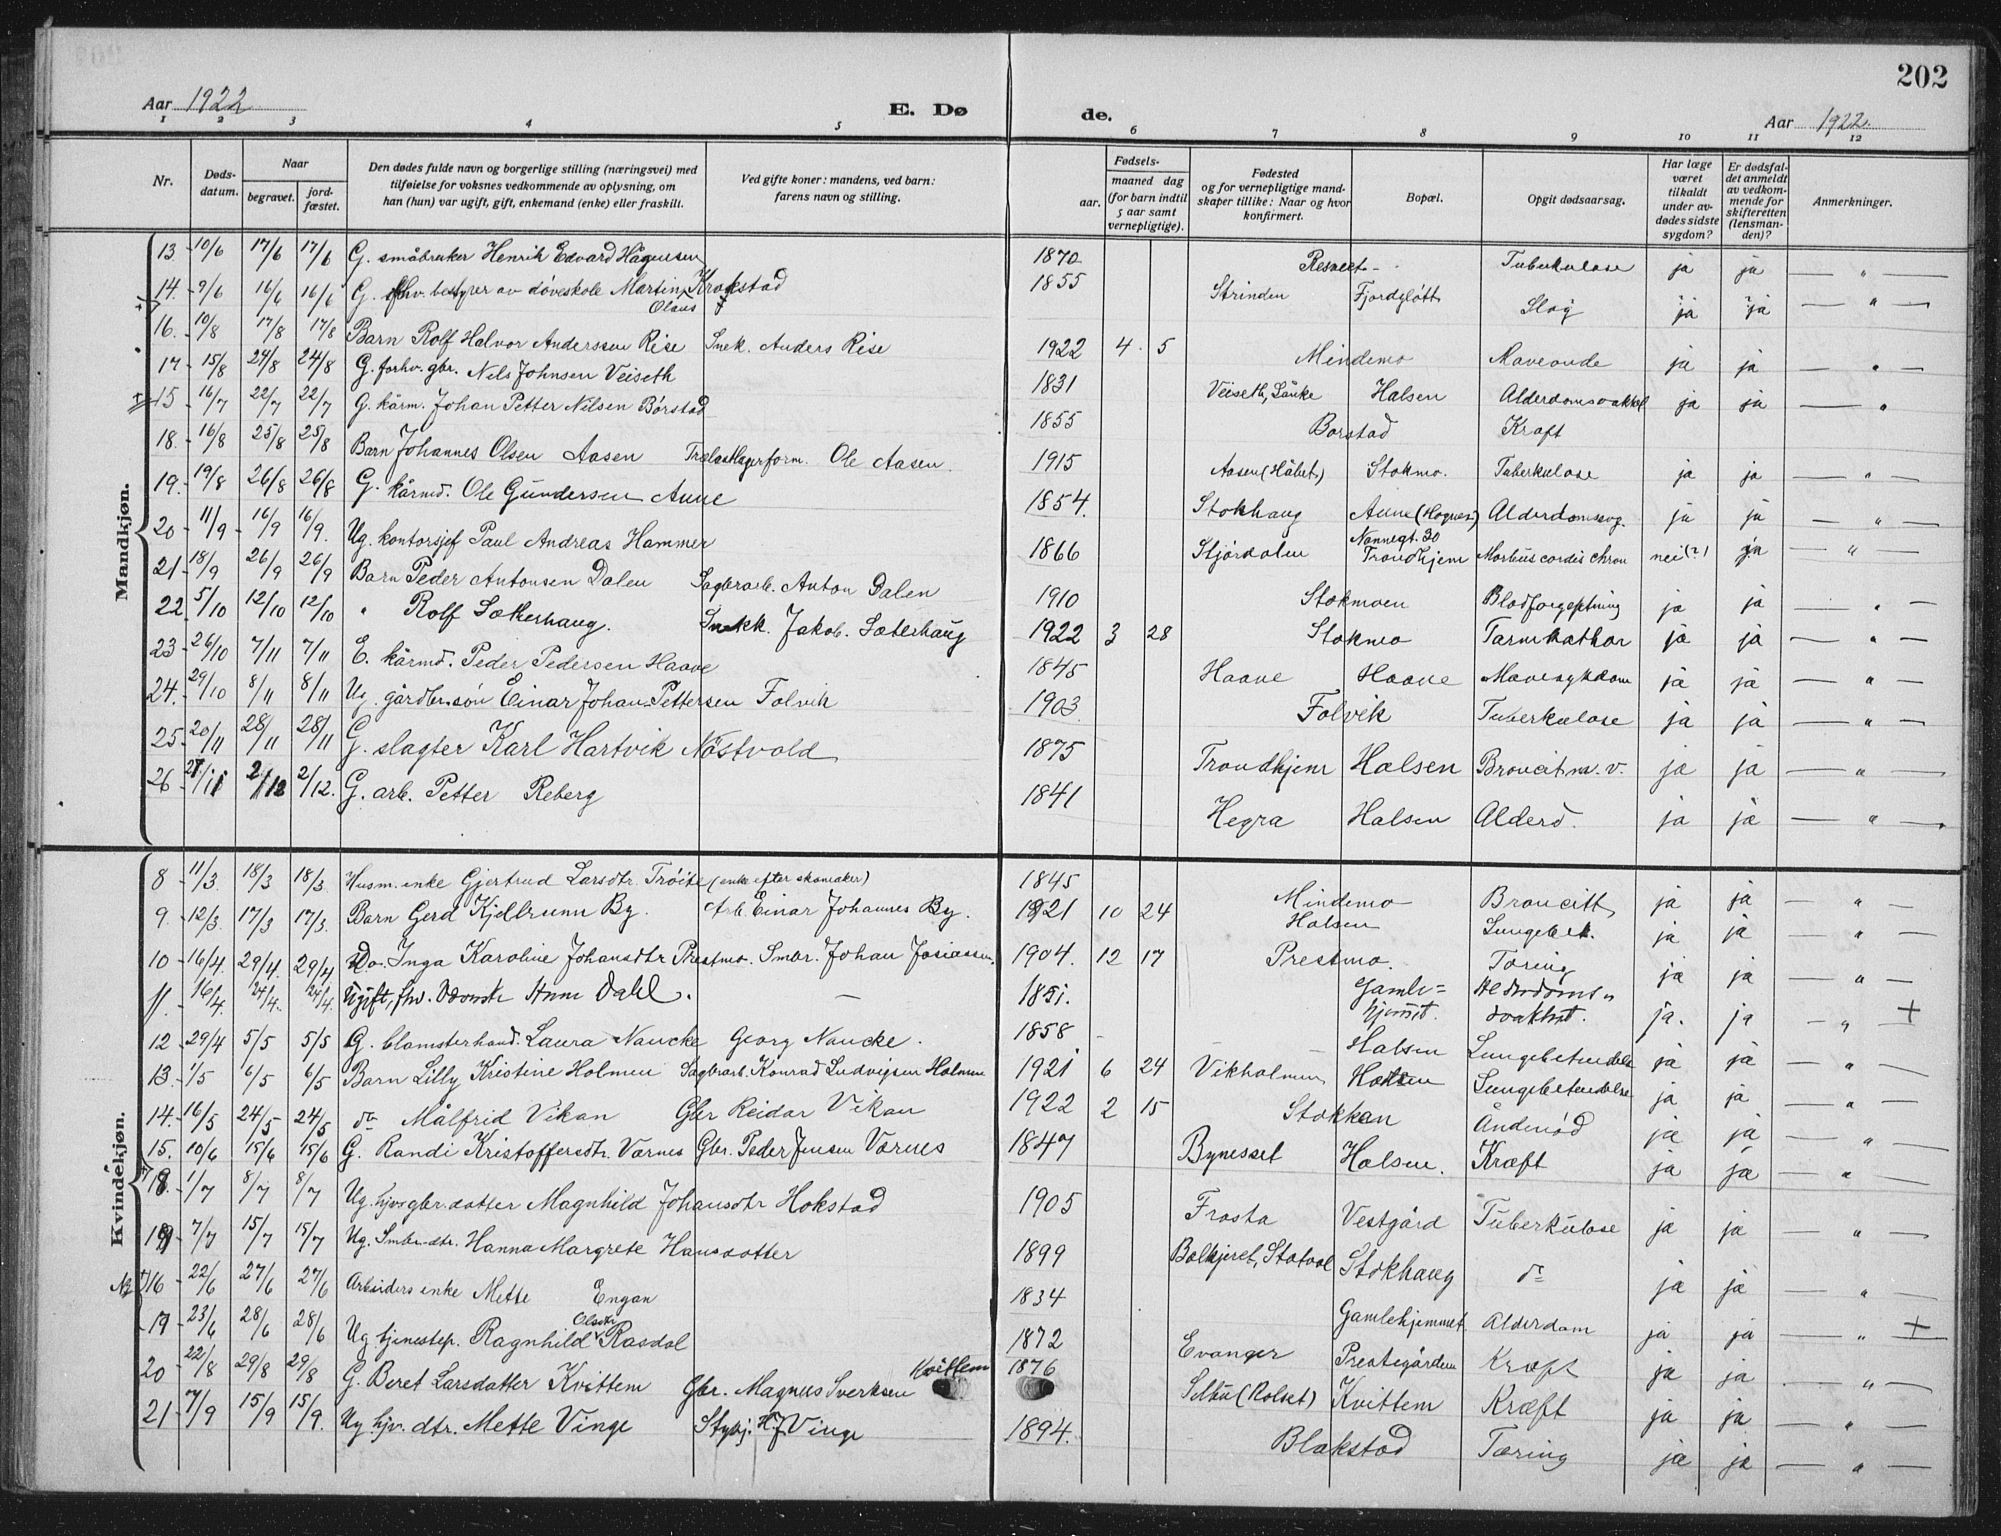 202
Aar 1922 E. Døde. Aar 1922.
1 2 3 4 5 6 7 8 9 10 11 12
Nr. | Døds-datum. | Naar begravet. | jord-fæstet. | Den dødes fulde navn og borgerlige stilling (næringsvei) med tilføielse for voksnes vedkommende av oplysning, om han (hun) var ugift, gift, enkemand (enke) eller fraskilt. | Ved gifte koner: mandens, ved barn: farens navn og stilling. | Fødsels- aar. | maaned dag (for barn indtil 5 aar samt vernepligtige). | Fødested og for vernepligtige mandskaper tillike: Naar og hvor konfirmert. | Bopæl. | Opgit dødsaarsag. | Har læge været tilkaldt under avdødes sidste sygdom? | Er dødsfaldet anmeldt av vedkommende for skifteretten (lensmanden)? | Anmerkninger.
Mandkjøn.
13 10/6 17/6 17/6 G. småbruker Henrik Edvard Hågensen 1870 Tuberkulose ja ja — " —
14. 9/6 16/6 16/6 G. fhv. bestyrer av døveskole Martin Olaus Krokstad 1855 Strinden Fjordgløtt Slag ja ja — " —
16. 10/8 17/8 17/8 Barn Rolf Halvor Anderssen Rise Snek. Anders Rise 1922 4 5 Mindemo Maveonde ja ja — " —
17 15/8 24/8 24/8 G. forhv. gbr. Nils Johnsen Veiseth 1831 Veiseth, Lånke Halsen Alderdomssvakkel ja ja — "
15 16/7 22/7 22/7 G. kårm. Johan Petter Nilsen Borstad 1855 Borstad Kræft
18. 16/8 25/8 25/8 Barn Johannes Olsen Aasen Trælastlagerform. Ole Aasen. 1915 Aasen (Håbet.) Stokmo. Tuberkulose ja ja — " —
19. 19/8 26/8 26/8 G. kårmd. Ole Gundersen Aune 1854. Stokhaug Aune (Hognes) Alderdomssvag. ja ja — " —
20 11/9 16/9 16/9. Ug. kontorsjef Paul Andreas Hammer 1866 Stjørdalen Nonnegt. 30 Trondhjem Morbus cordis chron nei (?) ja — " —
21 18/9 26/9 26/9 Barn Peder Antonsen Dalen Sagbrarb. Anton Dalen 1910 Stokmoen Blodforgiftning ja ja " —
22 5/10 12/10 12/10 " Rolf Sæterhaug. Snekk. Jakob. Sæterhaug 1922 3 28 Stokmo Tarmkathar ja ja — " —
23 26/10 7/11 7/11 E. kårmd. Peder Pedersen Haave 1845 Haave Haave Mavesykdom ja ja — " —
24. 29/10 8/11 8/11 Ug. gårdbr.søn Einar Johan Pettersen Folvik 1903 Folvik Tuberkulose ja ja — " —
25 20/11 28/11 28/11 G. slagter Karl Hartvik Nøstvold 1875 Trondhjem Halsen Broncit m. v. ja ja — " —
26 /11 2/12 2/12. G. arb. Petter Reberg 1841 Hegra Halsen Alderd. ja ja — " —
Kvindekjøn.
8 11/3. 18/3 18/3 Husm. enke Gjertrud Larsdtr. Trøite (enke efter skomaker) 1845 Mindemo Broncitt ja ja — " —
9 12/3. 17/3 17/3. Barn Gerd Kjellrunn By. Arb. Einar Johannes By. 1921 10 24 Halsen Lungebet. ja ja — " —
10 16/4. 29/4. 29/4 Do. Inga Karoline Johansdtr Prestmo. Smbr. Johan Josiassen. 1904. 12 17 Prestmo. Tæring ja ja — " —
11. 16/4. 24/4. 24/4. Ugift, fhv. Dahl. — Gamle=hjemmet. Alderdoms-svakhet. ja. ja — " — +
12 29/4 5/5 5/5 G. blomsterhand. Laura Naucke Georg Naucke. 1858 Halsen Lungebetendelse ja ja — " —
13. 1/5 6/5 6/5 Barn Lilly Kristine Holmen Sagbrarb. Konrad Ludvigsen Holmen 1921 6 24 Vikholmen Halsen Lungebetendelse ja ja — " —
14. 16/5 24/5 24/5 do Målfrid Vikan Gbr Reidar Vikan 1922 2 15 Stokkan Åndenød ja ja — " —
15. 10/6 15/6 15/6 G. Randi Kristoffersdtr. Værnes Gbr. Peder Jensen Værnes 1847 Bynesset Halsen. Kræft ja ja — " —
18. 1/7 8/7 8/7 Ug. hjvs gbr. datter Magnhild Johansdtr Hokstad 1905 Frosta Vestgård Tuberkulose ja ja — " —
7/7 15/7 15/7 Ug. Smbr.dtr. Hanna Margrete Hansdatter 1899 Stokhaug do ja ja — " —
16 22/6 27/6 27/6 Arbeiders enke Mette Engan 1834 Gamlehjemmet Alderdom ja ja — " — +
23/6 28/6 28/6 Ug tjenestep. Ragnhild Olsdtr Rasdal 1872 Evanger Prestegården Kræft ja ja — " —
20 22/8 29/8 29/8 G. Beret Larsdatter Kvittem Gbr. Magnus Sverksen Kvittem 1876 Selbu (Rolset) Kvittem Kræft ja ja — " —
21 7/9 15/9 15/9. Ug hjv. dtr. Mette Vinge H. J. Vinge 1894. Blakstad Tæring ja ja — " —